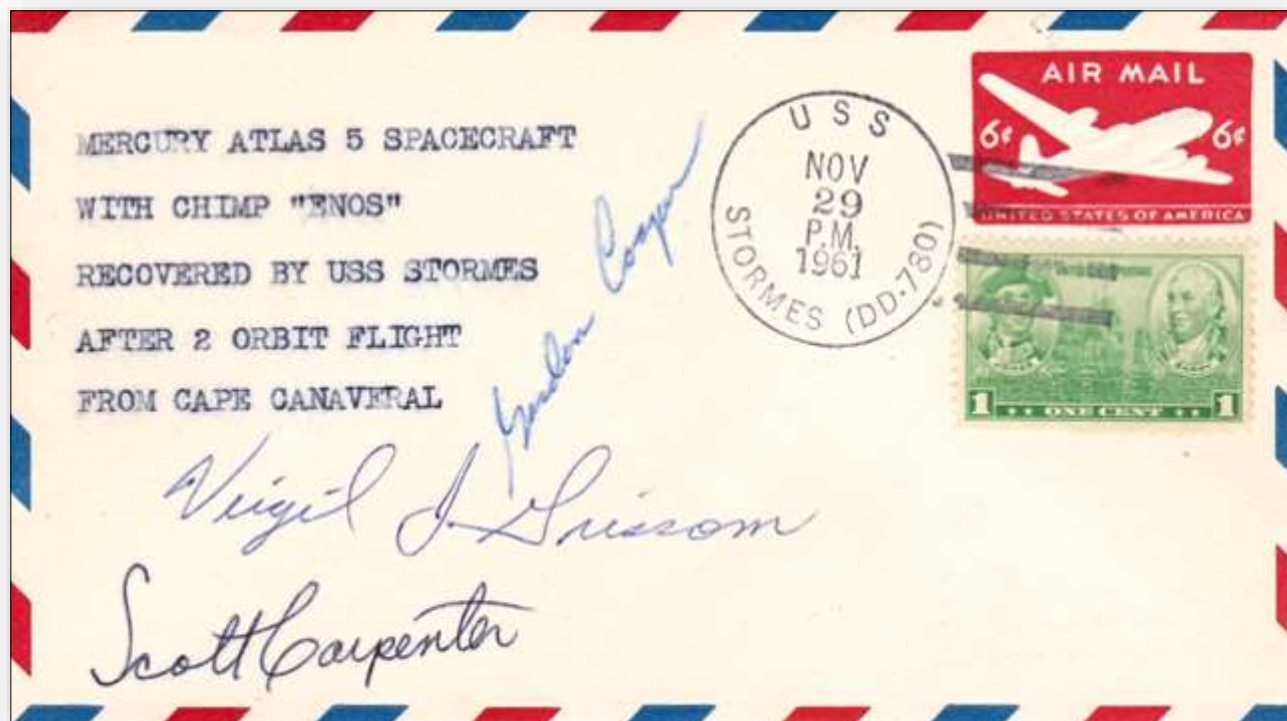 MERCURY ATLAS 5 SPACECRAFT
WITH CHIMP "ENOS"
RECOVERED BY USS STORMES
AFTER 2 ORBIT FLIGHT
FROM CAPE CANAVERAL
Gordon Cooper
Virgil I. Grissom
Scott Carpenter
USS
NOV
29
P.M.
1961
STORMES (DD-780)
AIR MAIL
6¢ 6¢
UNITED STATES OF AMERICA
1 ONE CENT 1